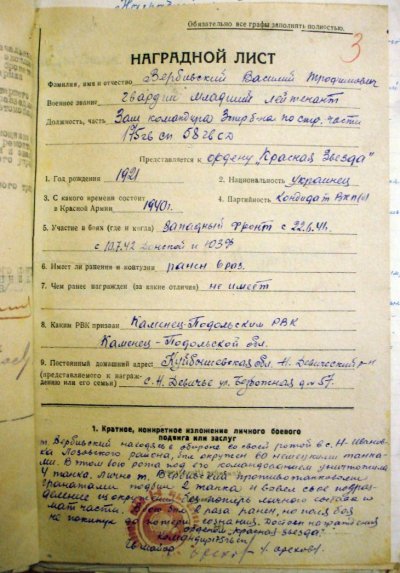 Обязательно все графы заполнять полностью.
3
НАГРАДНОЙ ЛИСТ
Фамилия, имя и отчество Вербивский Василий Трофимович
Военное звание гвардии младший лейтенант
Должность, часть Зам командира 3 стр. б-на по стр. части
175 гв сп 58 гв сд
Представляется к ордену "Красная Звезда"
1. Год рождения 1921 2. Национальность украинец
3. С какого времени состоит в Красной Армии 1940 г. 4. Партийность Кандидат ВКП(б)
5. Участие в боях (где и когда) Западный фронт с 22.6.41.
с 10.7.42 Донской и ЮЗФ
6. Имеет ли ранения и контузии ранен 6 раз.
7. Чем ранее награжден (за какие отличия) не имеет
8. Каким РВК призван Каменец-Подольским РВК
Каменец-Подольской обл.
9. Постоянный домашний адрес Куйбышевская обл. Н. Девический р-н
(представляемого к награждению или его семьи) с. Н. Девичье ул. д. № 57.
1. Краткое, конкретное изложение личного боевого
подвига или заслуг
т. Вербивский находясь в обороне со своей ротой в с. Н-Ивановка
Лозовского района, был окружен 60 немецкими танками.
В этом бою рота под его командованием уничтожила
4 танка. Лично т. Вербивский противотанковыми
гранатами подбил 2 танка и вывел свое подразделение
из окружения без потерь личного состава и
матчасти. В этом бою 2 раза ранен, но поля боя
не покинул до потери сознания. Достоин награждения
орденом "Красная звезда".
Командир 175 гв сп
гв майор